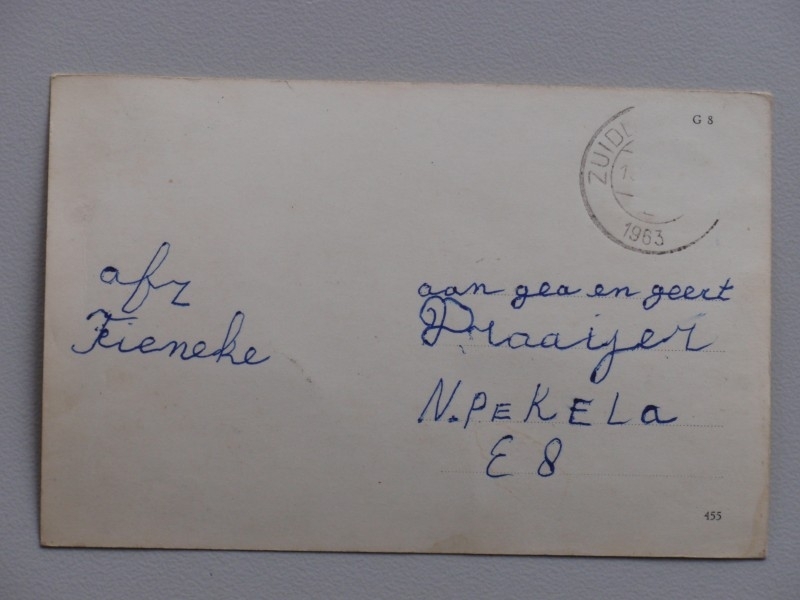 G 8
ZUIDL
1963
afz
Fieneke
aan gea en geert
Draaijer
N.PEKELA
E 8
455